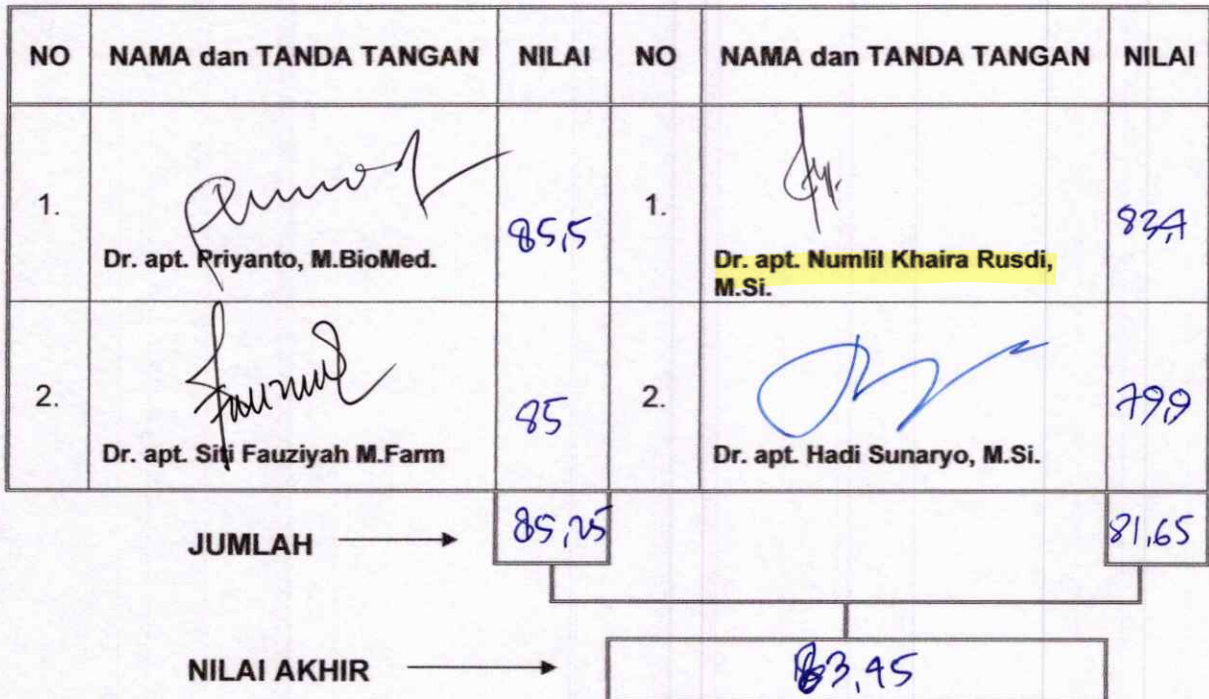 NO NAMA dan TANDA TANGAN NILAI NO NAMA dan TANDA TANGAN NILAI
1. 85,5 1. 83,4
Dr. apt. Priyanto, M.BioMed. Dr. apt. Numlil Khaira Rusdi,
M.Si.
2. 85 2. 79,9
Dr. apt. Siti Fauziyah M.Farm Dr. apt. Hadi Sunaryo, M.Si.
JUMLAH 85,25 81,65
NILAI AKHIR 83,45